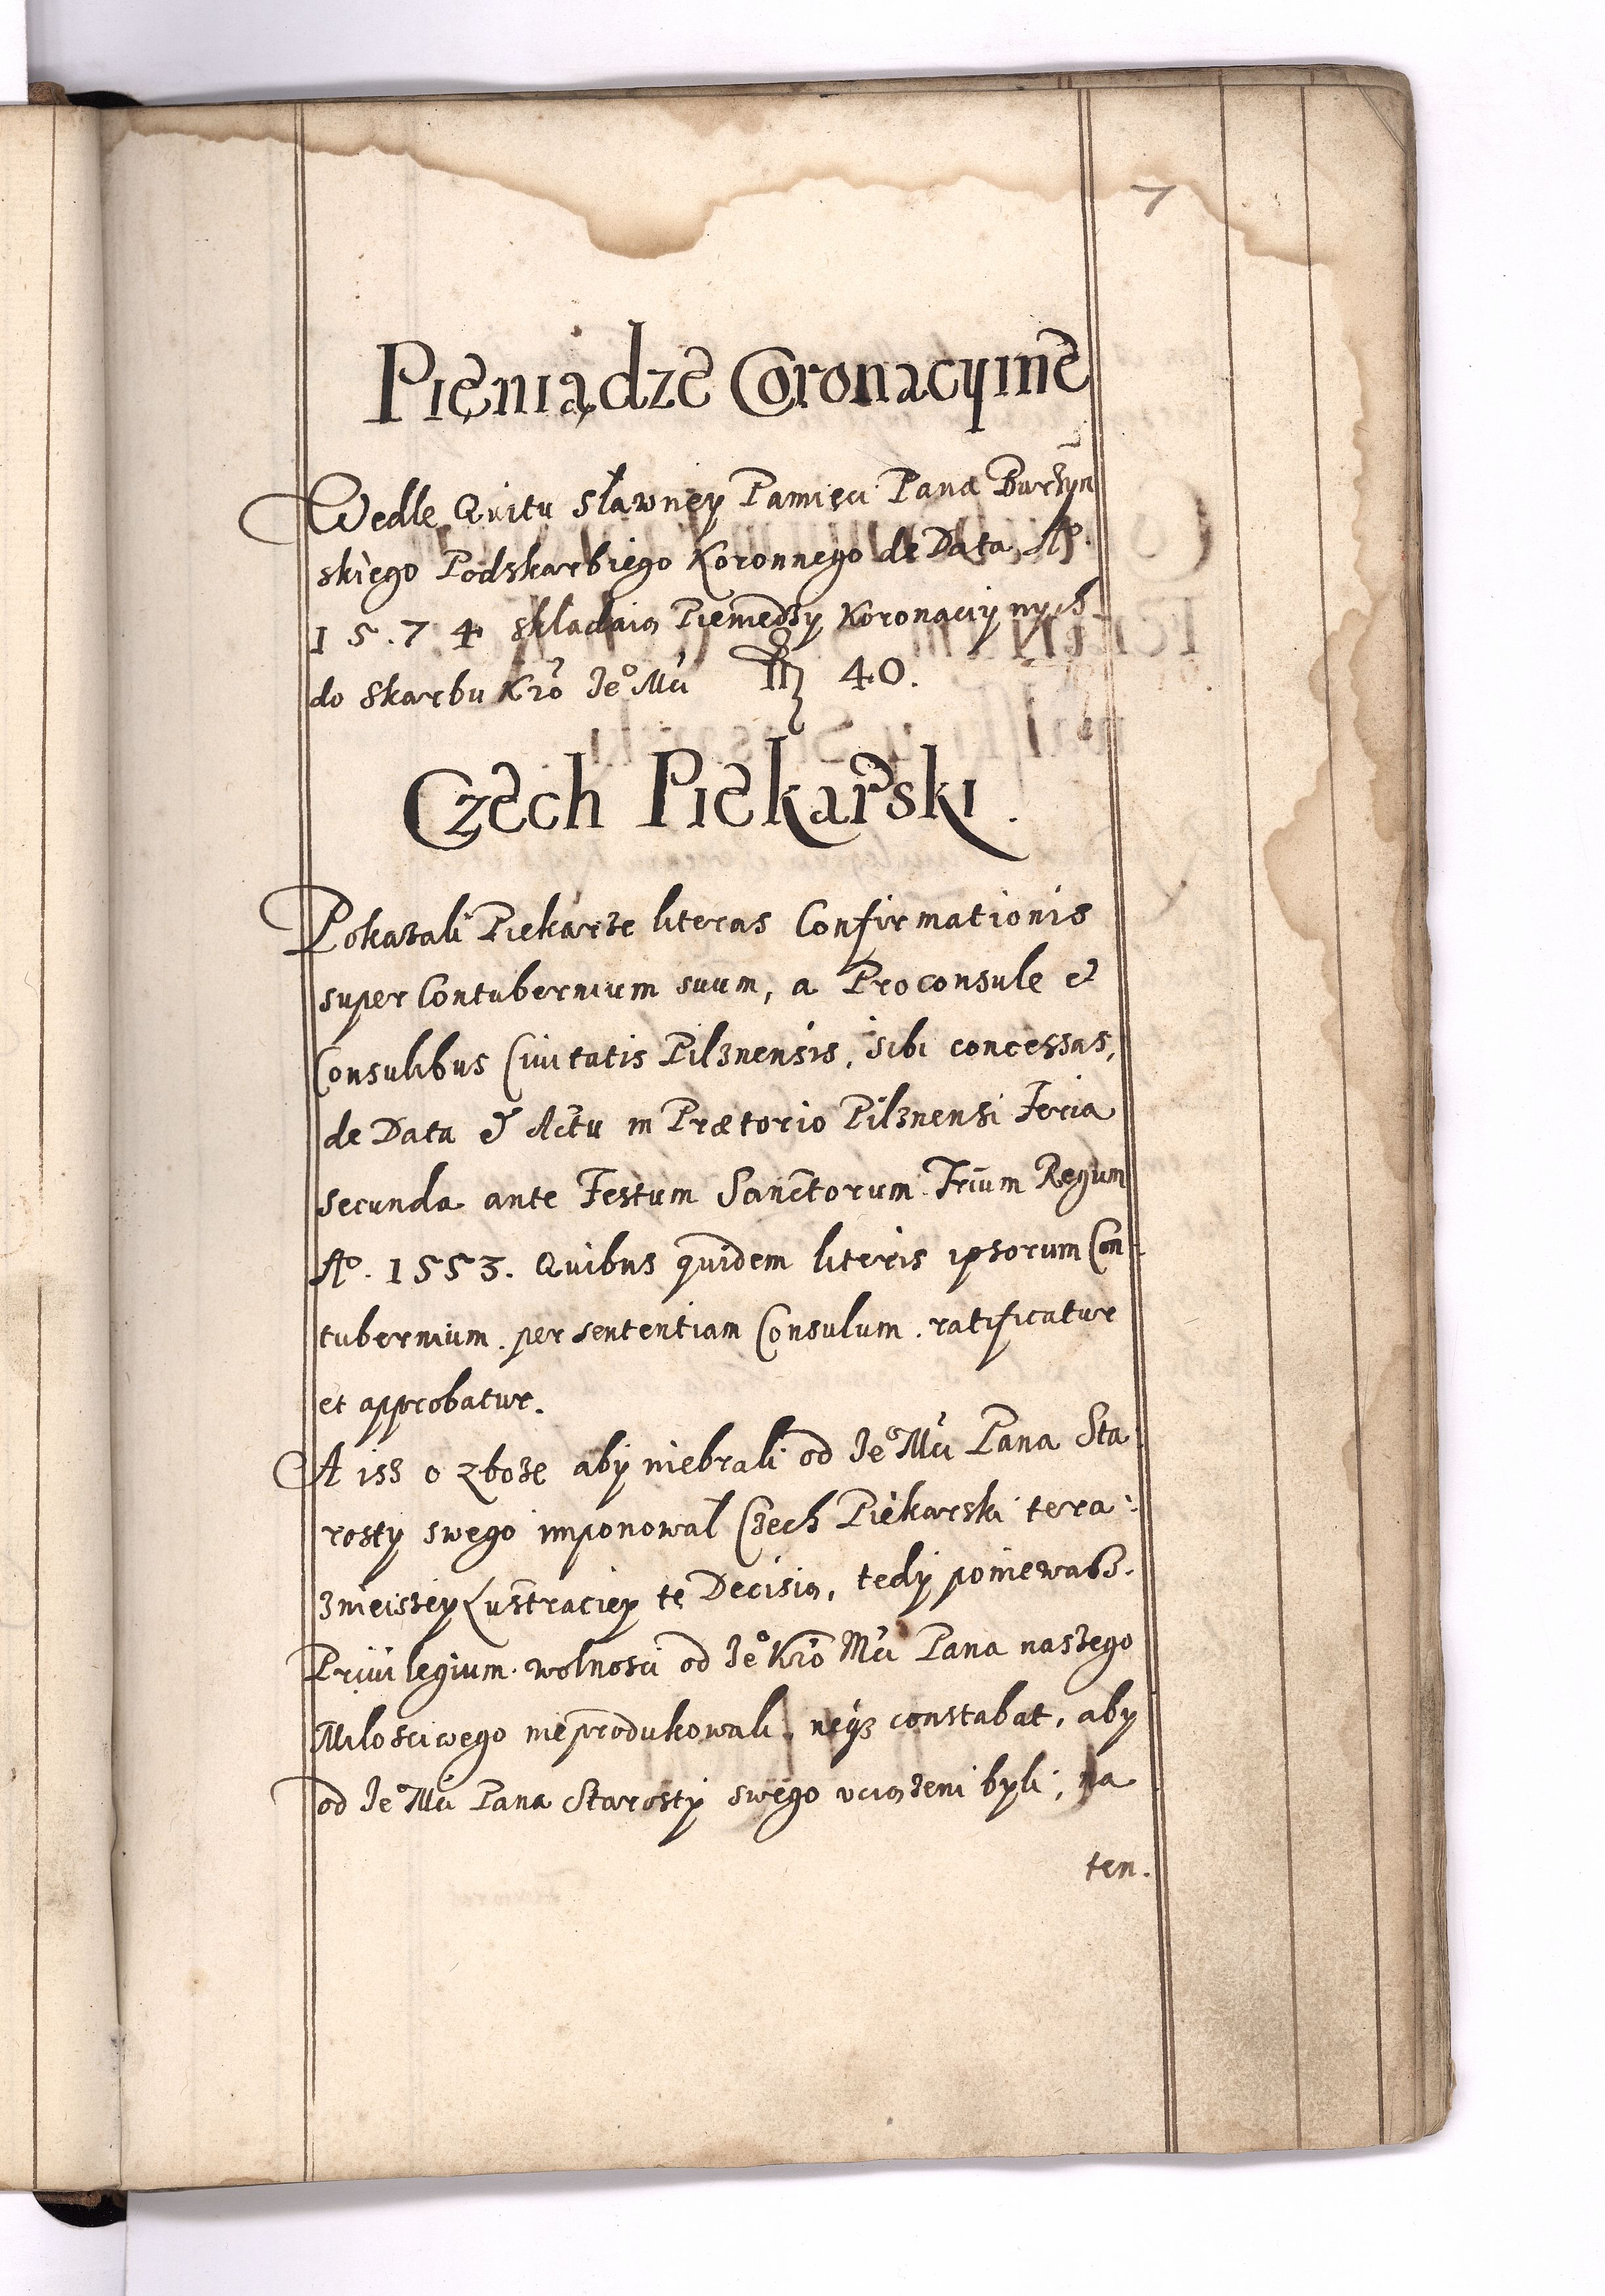 7
Pieniądze Coronacyine
Wedle Quitu Sławney Pamięci Pana Burzyń
skiego Podskarbiego Koronnego de Data Aº.
15.74 składaią Pieniedzy Koronaciynych
do Skarbu Kró Jeº Mći 40.
Czech Piekarski.
Pokazali Piekarze literas Confirmationis
super Contubernium suum, a Proconsule et
Consulibus Ciuitatis Pilznensis, sibi concessas,
de Data et Actu in Prætorio Pilznensi Feria
secunda ante Festum Sanctorum Trium Regum
Aº. 1553. Quibus quidem literis ipsorum Con
tubernium per sententiam Consulum ratificatur
et approbatur.
A isz o zboże aby niebrali od Jeº Mći Pana Sta
rosty swego imponował Czech Piekarski tera:
znieiszey Lustraciey te Decisią, tedy poniewasz
Priuilegium wolnosci od Jeº Kró Mći Pana naszego
Miłosciwego nieprodukowali, neqз constabat, aby
od Jeº Mći Pana Starosty swego vciążeni byli, na
ten.